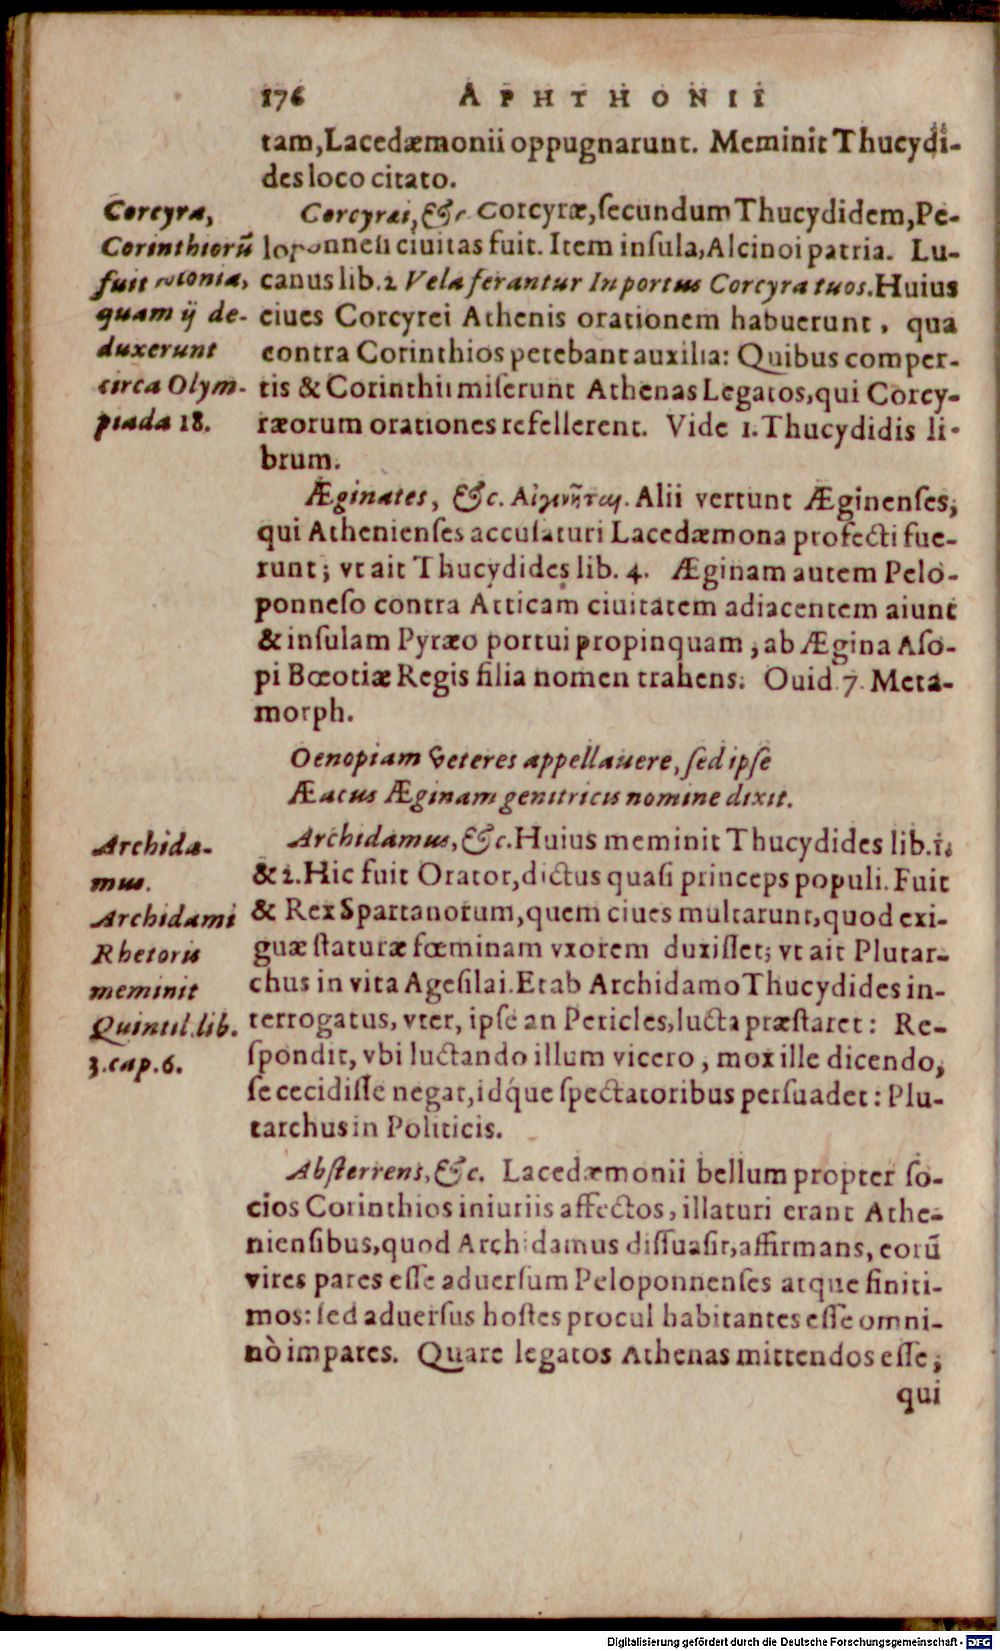 176 APHTHONII
tam, Lacedæmonii oppugnarunt. Meminit Thucydi-
des loco citato.
Corcyræi, &c. Corcyræ, ſecundum Thucydidem, Pe-
loponneſi ciuitas fuit. Item inſula, Alcinoi patria. Lu-
canus lib. 2 Vela ferantur In portus Corcyra tuos. Huius
ciues Corcyrei Athenis orationem habuerunt, qua
contra Corinthios petebant auxilia: Quibus comper-
tis & Corinthii miſerunt Athenas Legatos, qui Corcy-
ræorum orationes refellerent. Vide 1. Thucydidis li-
brum.
Corcyra,
Corinthiorũ
fuit colonia,
quam ij de-
duxerunt
circa Olym-
piada 18.
Æginates, &c. Αἰγινῆται. Alii vertunt Æginenſes,
qui Athenienſes accuſaturi Lacedæmona profecti fue-
runt; vt ait Thucydides lib. 4. Æginam autem Pelo-
ponneſo contra Atticam ciuitatem adiacentem aiunt
& inſulam Pyræo portui propinquam, ab Ægina Aſo-
pi Bœotiæ Regis filia nomen trahens. Ouid. 7. Meta-
morph.
Oenopiam veteres appellauere, ſed ipſe
Æacus Æginam genitricis nomine dixit.
Archidamus, &c. Huius meminit Thucydides lib. 1.
& 2. Hic fuit Orator, dictus quaſi princeps populi. Fuit
& Rex Spartanorum, quem ciues multarunt, quod exi-
guæ ſtaturæ fœminam vxorem duxiſſet; vt ait Plutar-
chus in vita Ageſilai. Et ab Archidamo Thucydides in-
terrogatus, vter, ipſe an Pericles, lucta præſtaret: Re-
ſpondit, vbi luctando illum vicero, mox ille dicendo,
ſe cecidiſſe negat, idq́ue ſpectatoribus perſuadet: Plu-
tarchus in Politicis.
Archida-
mus.
Archidami
Rhetoris
meminit
Quintil. lib.
3. cap. 6.
Abſterrens, &c. Lacedæmonii bellum propter ſo-
cios Corinthios iniuriis affectos, illaturi erant Athe-
nienſibus, quod Archidamus diſſuaſit, affirmans, eorũ
vires pares eſſe aduerſum Peloponnenſes atque finiti-
mos: ſed aduerſus hoſtes procul habitantes eſſe omni-
nò impares. Quare legatos Athenas mittendos eſſe,
qui
Digitalisierung gefördert durch die Deutsche Forschungsgemeinschaft - DFG